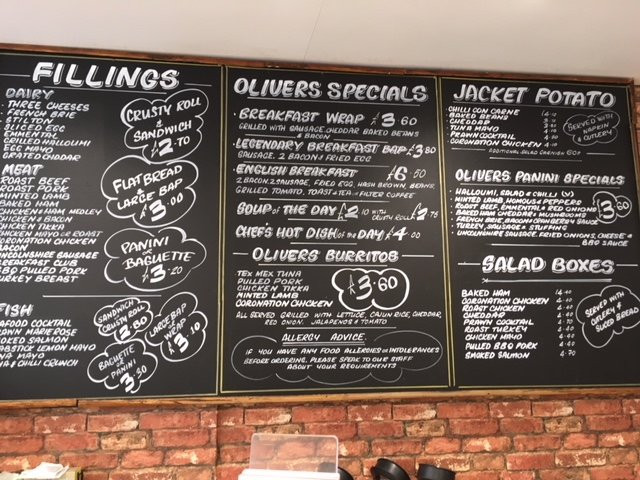 FILLINGS
DAIRY
THREE CHEESES
FRENCH BRIE
STILTON
SLICED EGG
EMMENTAL
GRILLED HALLOUMI
EGG MAYO
GRATED CHEDDAR
MEAT
ROAST BEEF
ROAST PORK
MINTED LAMB
BAKED HAM
CHICKEN HAM MEDLEY
CHICKEN & BACON
CHICKEN TIKKA
CHICKEN MAYO OR ROAST
CORONATION CHICKEN
BACON
LINCOLNSHIRE SAUSAGE
BREAKFAST CLUB
BBQ PULLED PORK
TURKEY BREAST
FISH
SEAFOOD COCKTAIL
PRAWN MARIE ROSE
SMOKED SALMON
CRABSTICK LEMON MAYO
TUNA MAYO
CHILLI CRUNCH
CRUSTY ROLL
&
SANDWICH
£2.70
FLATBREAD
&
LARGE BAP
£3.00
PANINI
BAGUETTE
£3.20
SANDWICH
CRUSTY ROLL
£2.80
LARGE BAP
WRAP
£3.10
BAGUETTE
PANINI
3.50
OLIVERS SPECIALS
BREAKFAST WRAP £3.60
GRILLED WITH SAUSAGE, CHEDDAR BAKED BEANS
& BACON
LEGENDARY BREAKFAST BAP £3.80
SAUSAGE, 2 BACON & FRIED EGG
ENGLISH BREAKFAST £6.50
2 BACON, 2 SAUSAGE, FRIED EGG, HASH BROWN, BEANS
GRILLED TOMATO, TOAST & TEA OR FILTER COFFEE
SOUP OF THE DAY £2.10 WITH CRUSTY ROLL £2.75
CHEF'S HOT DISH OF THE DAY £4.00
OLIVERS BURRITOS
TEX MEX TUNA
PULLED PORK
CHICKEN TIKKA
MINTED LAMB
CORONATION CHICKEN
£3.60
ALL SERVED GRILLED WITH LETTUCE, CAJUN RICE, CHEDDAR,
RED ONION, JALAPENOS & TOMATO
ALLERGY ADVICE
IF YOU HAVE ANY FOOD ALLERGIES OR INTOLERANCES
BEFORE ORDERING, PLEASE SPEAK TO OUR STAFF
ABOUT YOUR REQUIREMENTS
JACKET POTATO
CHILLI CON CARNE
BAKED BEANS
CHEDDAR
TUNA MAYO
PRAWN COCKTAIL
CORONATION CHICKEN
ADDITIONAL SALAD GARNISH 60P
SERVED WITH
NAPKIN
& CUTLERY
OLIVERS PANINI SPECIALS
HALLOUMI, SALAD & CHILLI (V)
MINTED LAMB, HOUMOUS & PEPPERS
ROAST BEEF, EMMENTAL & RED ONIONS
BAKED HAM CHEDDAR & MUSHROOMS
FRENCH BRIE, BACON & CRANBERRY SAUCE
TURKEY, SAUSAGE & STUFFING
LINCOLNSHIRE SAUSAGE, FRIED ONIONS, CHEESE &
BBQ SAUCE
£3.60
SALAD BOXES
BAKED HAM
CORONATION CHICKEN
ROAST CHICKEN
CHEDDAR
PRAWN COCKTAIL
ROAST TURKEY
CHICKEN MAYO
PULLED BBQ PORK
SMOKED SALMON 4.70
SERVED WITH
CUTLERY &
SLICED BREAD